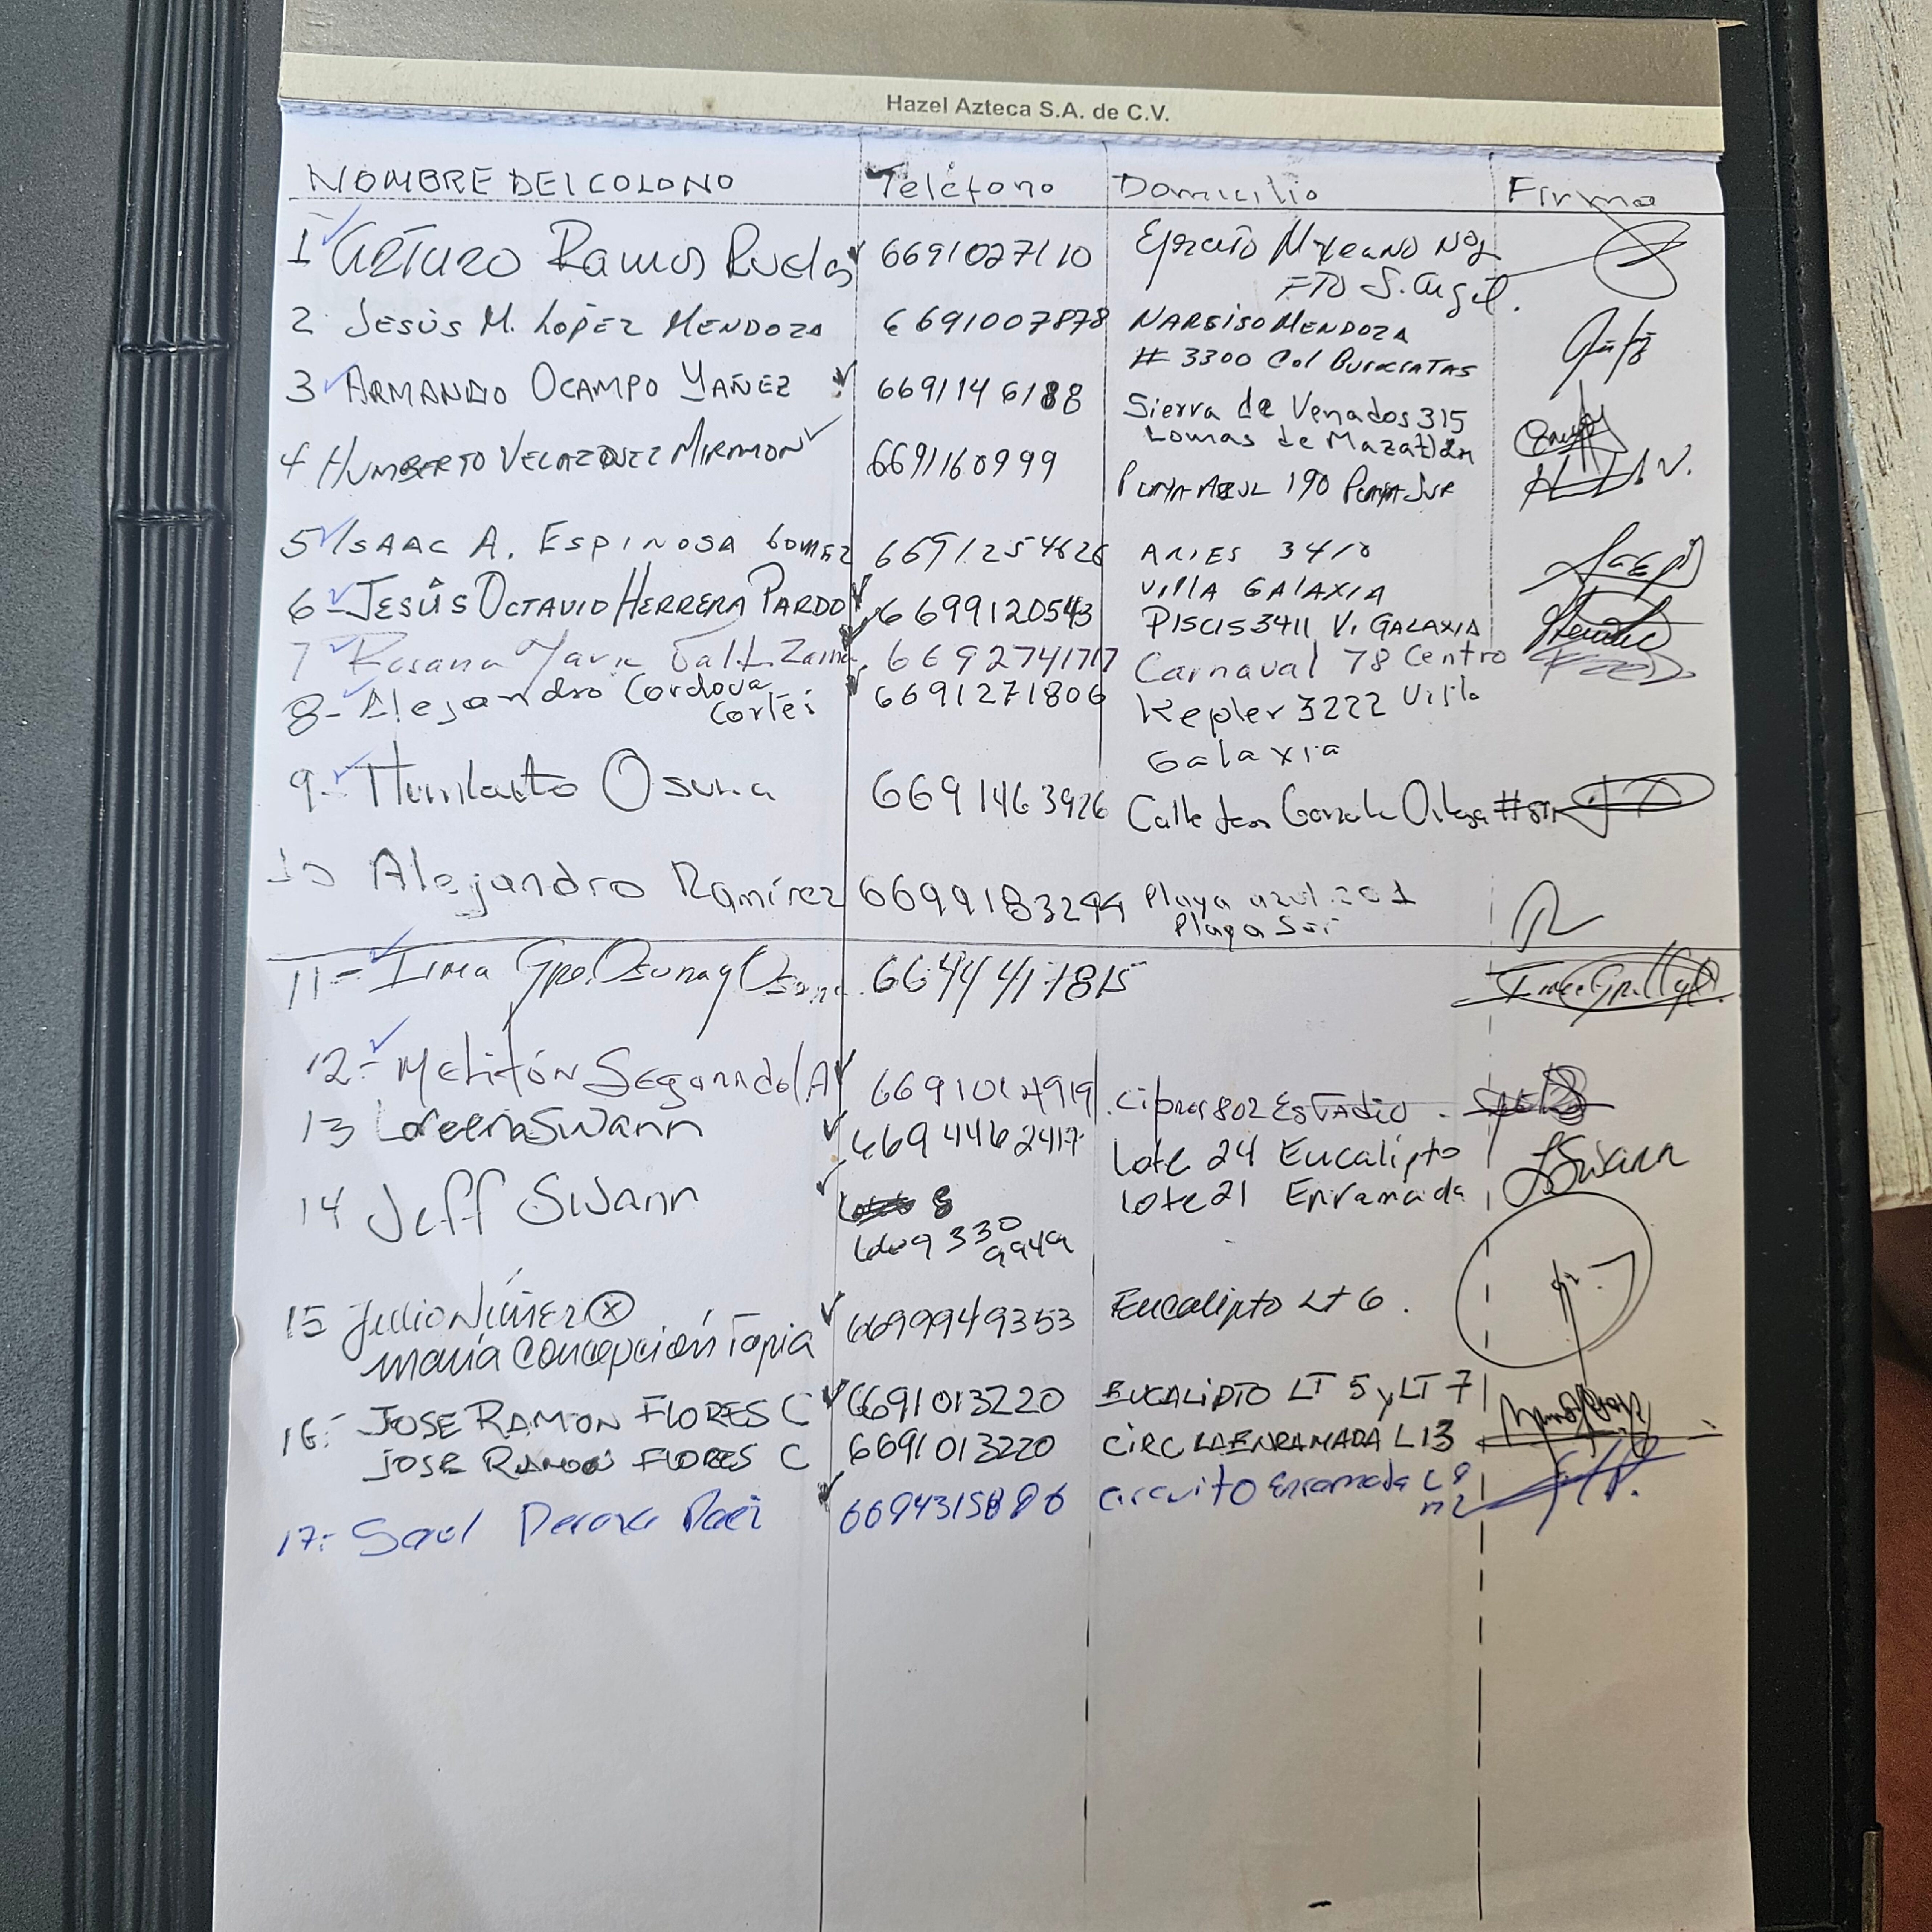 Hazel Azteca S.A. de C.V.
NOMBRE DEL COLONO Teléfono Domicilio Firma
1 Arturo Ramos Ruelas 6691027110 Ejército Mexicano
FTO S. Angel.
2 JESÚS M. LÓPEZ MENDOZA 6691007878 NARSISO MENDOZA
# 3300 Col BUROCRATAS
3 ARMANDO OCAMPO YAÑEZ 6691146188 Sierra de Venados 315
Lomas de Mazatlán
4 HUMBERTO VELAZQUEZ MIRAMON 6691160999 PLAYA AZUL 190 PLAYA SUR
5 ISAAC A. ESPINOSA GOMEZ 6691254626 ARIES 3410
VILLA GALAXIA
6- JESÚS OCTAVIO HERRERA PARDO 6699120543 PISCIS 3411 V. GALAXIA
7 Rosana 6692741717 Carnaval 78 Centro
8- Alejandro Cordova 6691271806 Kepler 3222 Villa
Cortés
Galaxia
9- Humberto Osuna 6691463926 Calle
10 Alejandro Ramírez 6699183294 Playa azul 201
Playa Sur
11- Irma Gpe. Osuna y Osuna 6644417815
12- Melitón 6691014919 802 ESTADIO
13 Loreena Swann 6694462417 Lote 24 Eucalipto LSwann
14 Jeff Swann 8 Lote 21 Enramada
669 330
9949
15 Julio Núñez 6699949353 Eucalipto Lt 6.
María Concepción Tapia
16- JOSE RAMON FLORES C 6691013220 EUCALIPTO LT 5 y LT 7
JOSE RAMON FLORES C 6691013220 CIRC LA ENRAMADA L 13
17- Saul circuito Enramada L9